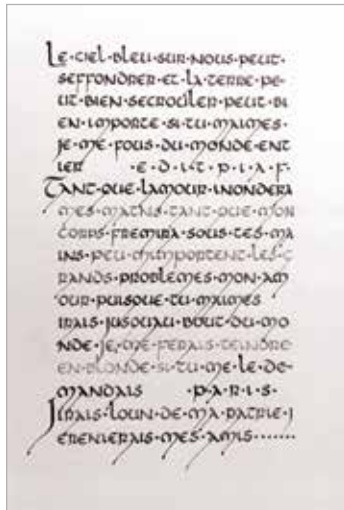 Le·ciel·bleu·sur·nous·peut·
seffondrer·et·la·terre·pe-
ut·bien·secroûler·peut·bi
en·importe·si·tu·maimes·
je·me·fous·du·monde·ent
ier ·e·d·i·t·p·i·a·f·
Tant·que·lamour·inondera
mes·matns·tant·que·mon
corps·fremira·sous·tes·ma
ins·peu·mimportent·les·g
rands·problemes·mon·am
our·puisque·tu·maimes
irais·jusquau·bout·du·mo
nde·je·me·ferais·teindre
en·blonde·si·tu·me·le·de-
mandais ·p·a·r·i·s·
Jirais·loun·de·ma·patrie·j
erenierais·mes·amis·······